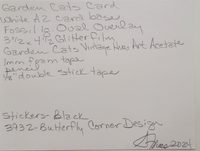 Garden Cats Card
White A2 Card base
Fossil 1g Oval Overlay
3 1/2 x 4 1/2 Glitter film
Garden Cats Vintage Hues Art Acetate
1mm foam tape
pencil
1/8" double stick tape
Stickers-Black
3932-Butterfly Corner Design
2024